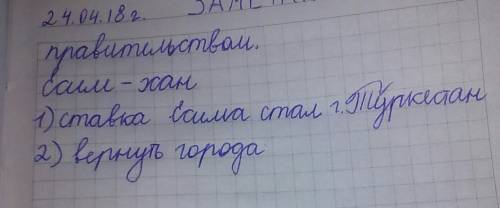 24.04.18 г.
правительством.
Саим-хан
1) ставка Саима стал г. Түркестан
2) вернуть города